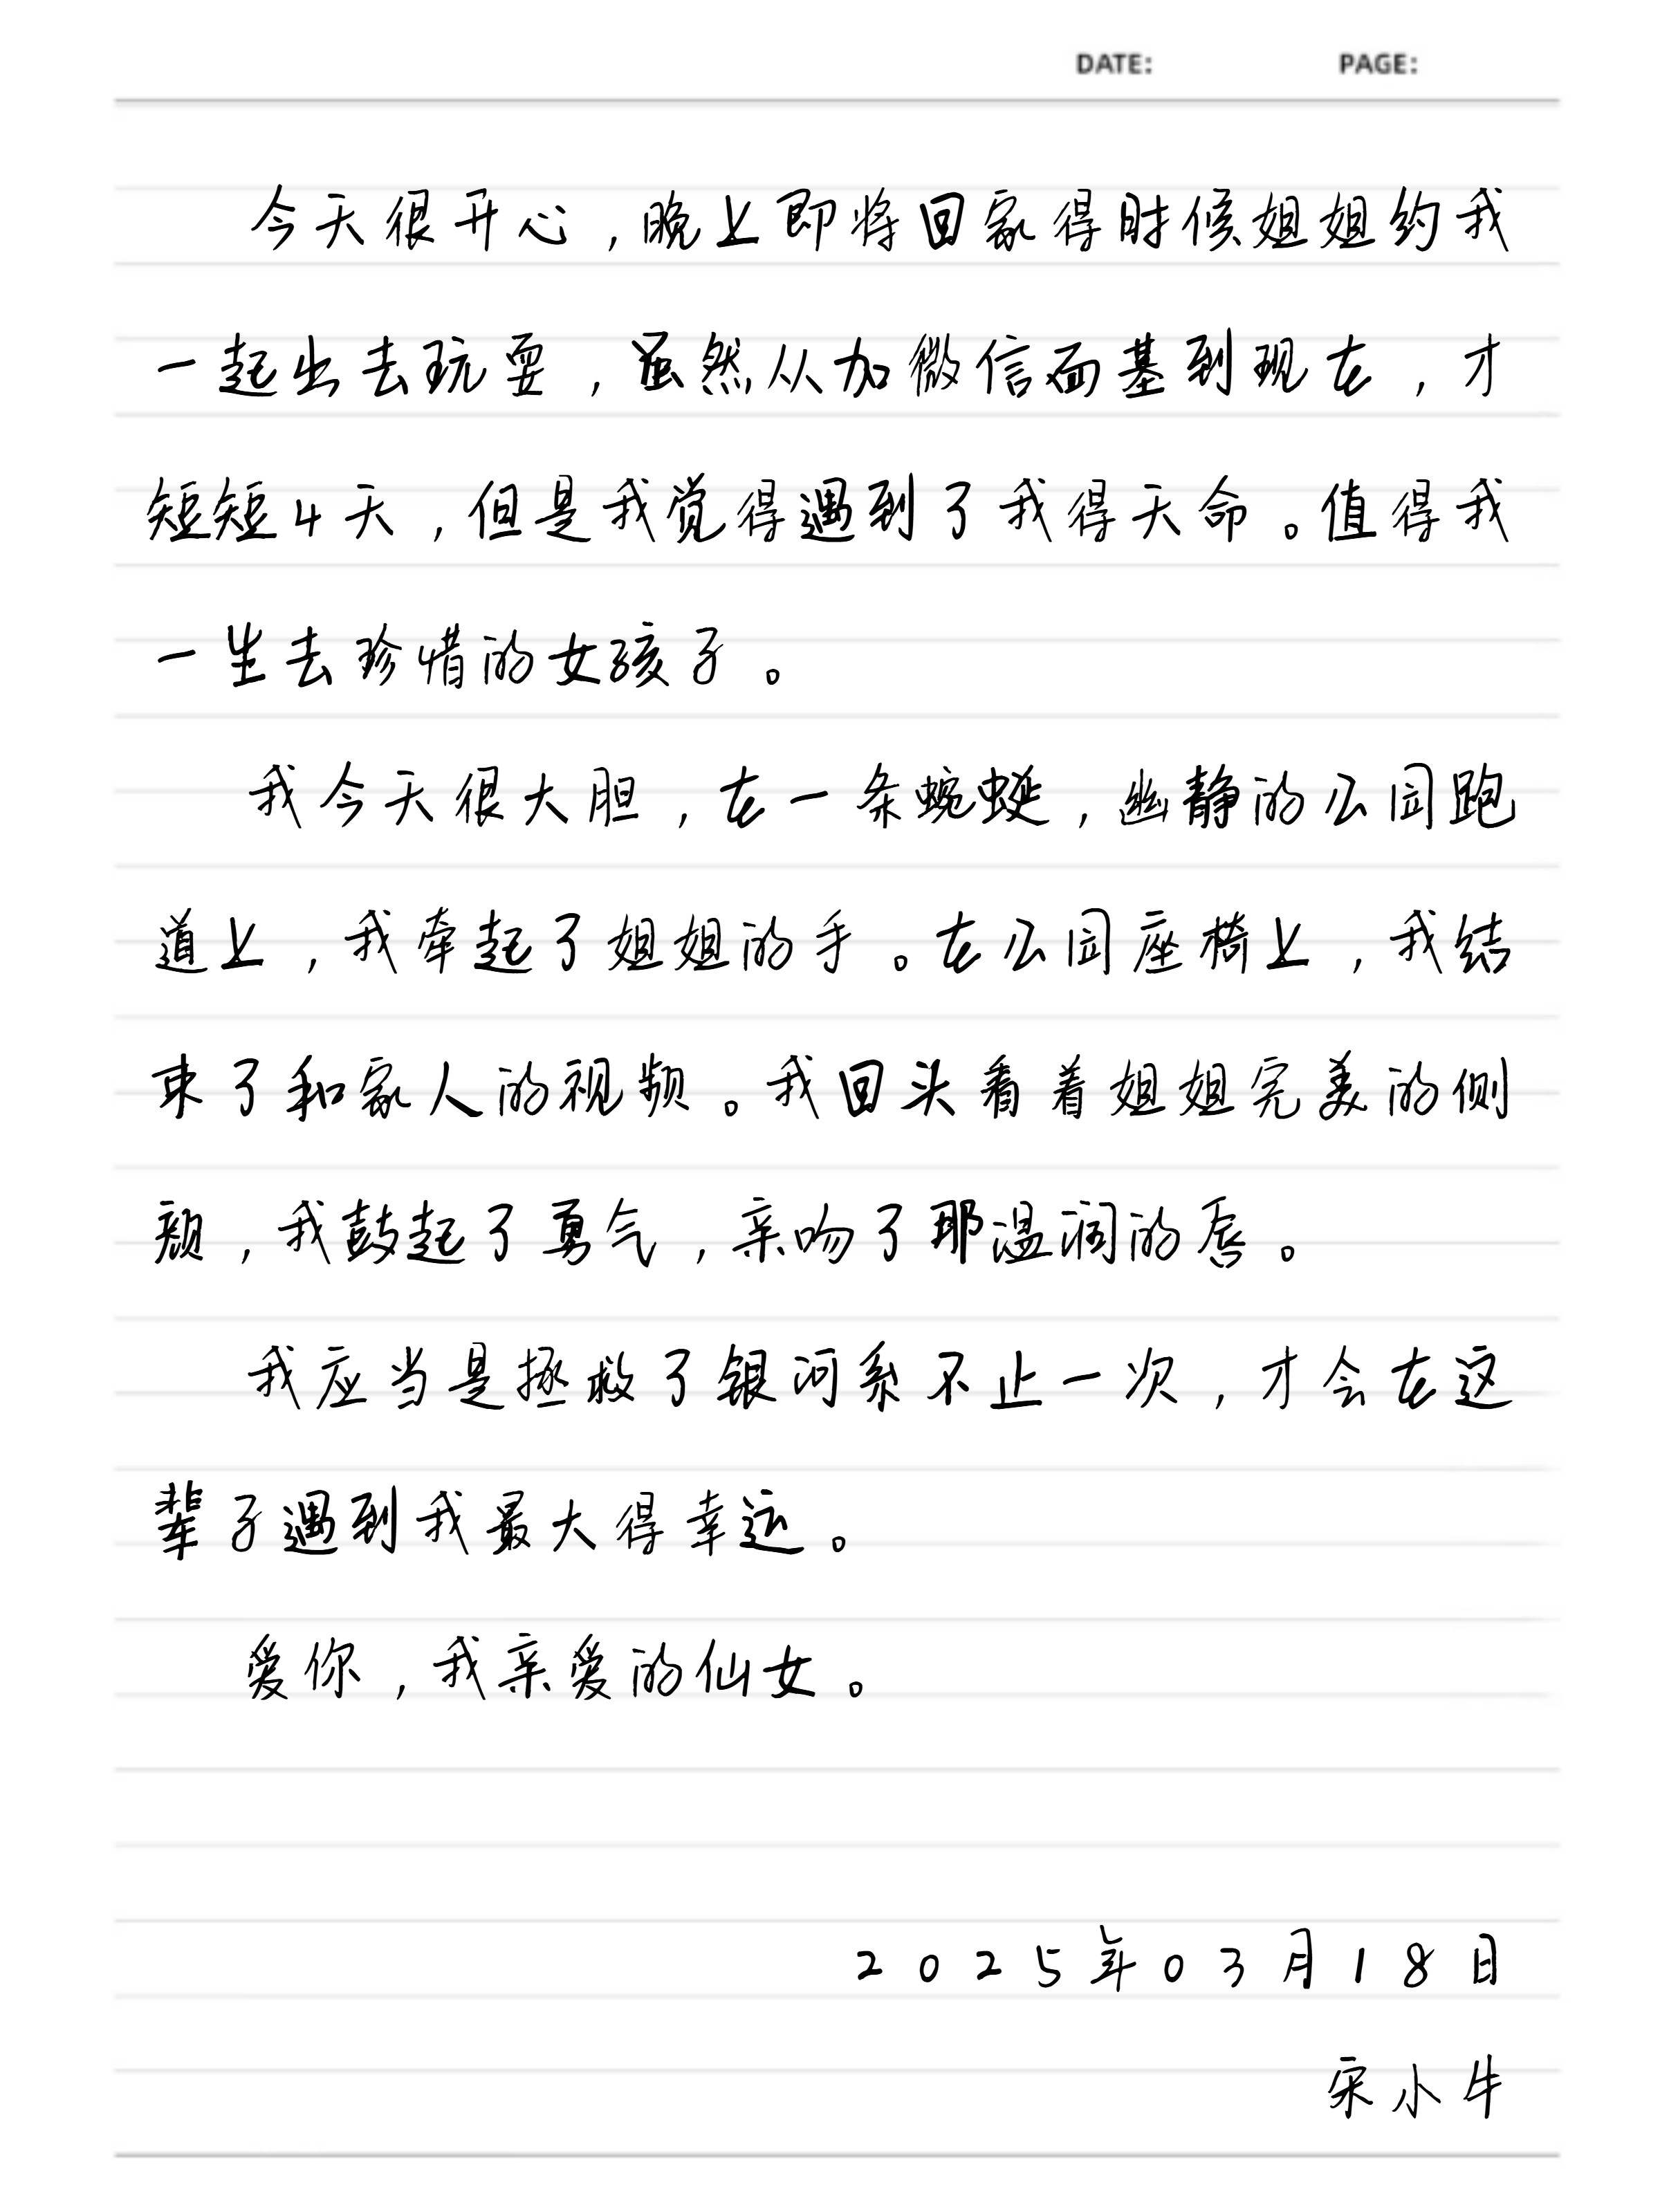 DATE: PAGE:
今天很开心,晚上即将回家得时候姐姐约我
一起出去玩耍,虽然从加微信面基到现在,才
短短4天,但是我觉得遇到了我得天命。值得我
一生去珍惜的女孩子。
我今天很大胆,在一条蜿蜒,幽静的公园跑
道上,我牵起了姐姐的手。在公园座椅上,我结
束了和家人的视频。我回头看着姐姐完美的侧
颜,我鼓起了勇气,亲吻了那温润的唇。
我应当是拯救了银河系不止一次,才会在这
辈子遇到我最大得幸运。
爱你,我亲爱的仙女。
2025年03月18日
宋小牛